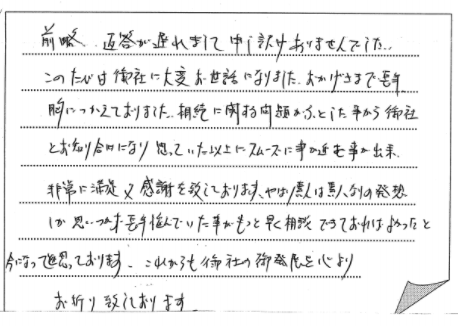 前略 返答が遅れまして申し訳ありませんでした。
このたびは御社に大変お世話になりました。おかげさまで長年
胸につかえておりました、相続に関する問題がふとした事から御社
とお知り合いになり思っていた以上にスムーズに事が進む事が出来、
非常に満足又感謝を致しております、やはり素人は素人なりの発想
しか思いつかず長年悩んでいた事がもっと早く相談できておればよかったと
今になって思っております。これからも御社の御発展を心より
お祈り致しております